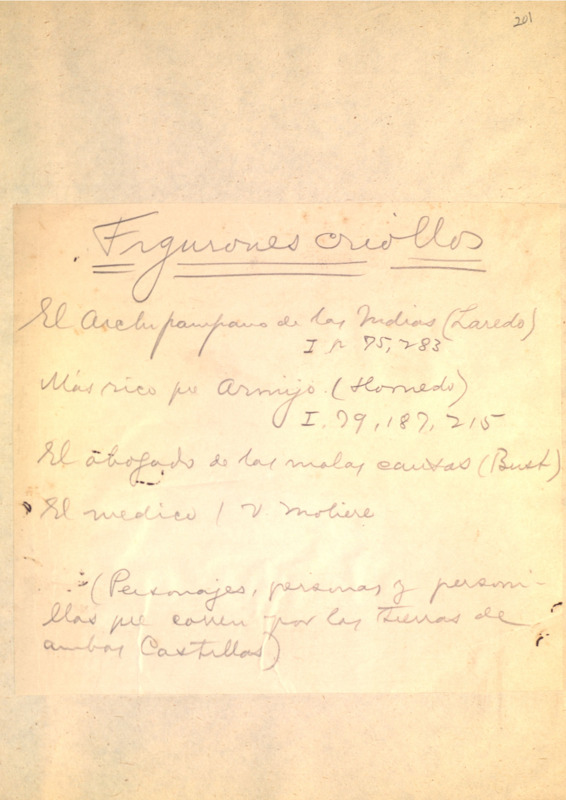 201
Figurones criollos
El Archipampano de las Indias (Laredo)
I p 75, 283
Más rico q Armijo. (Hornedo)
I. 79, 187, 215
El abogado de las malas causas (Bust)
El medico / V. Moliere
(Personajes, personas y personi-
llas que corren por las tierras de
ambas Castillas)